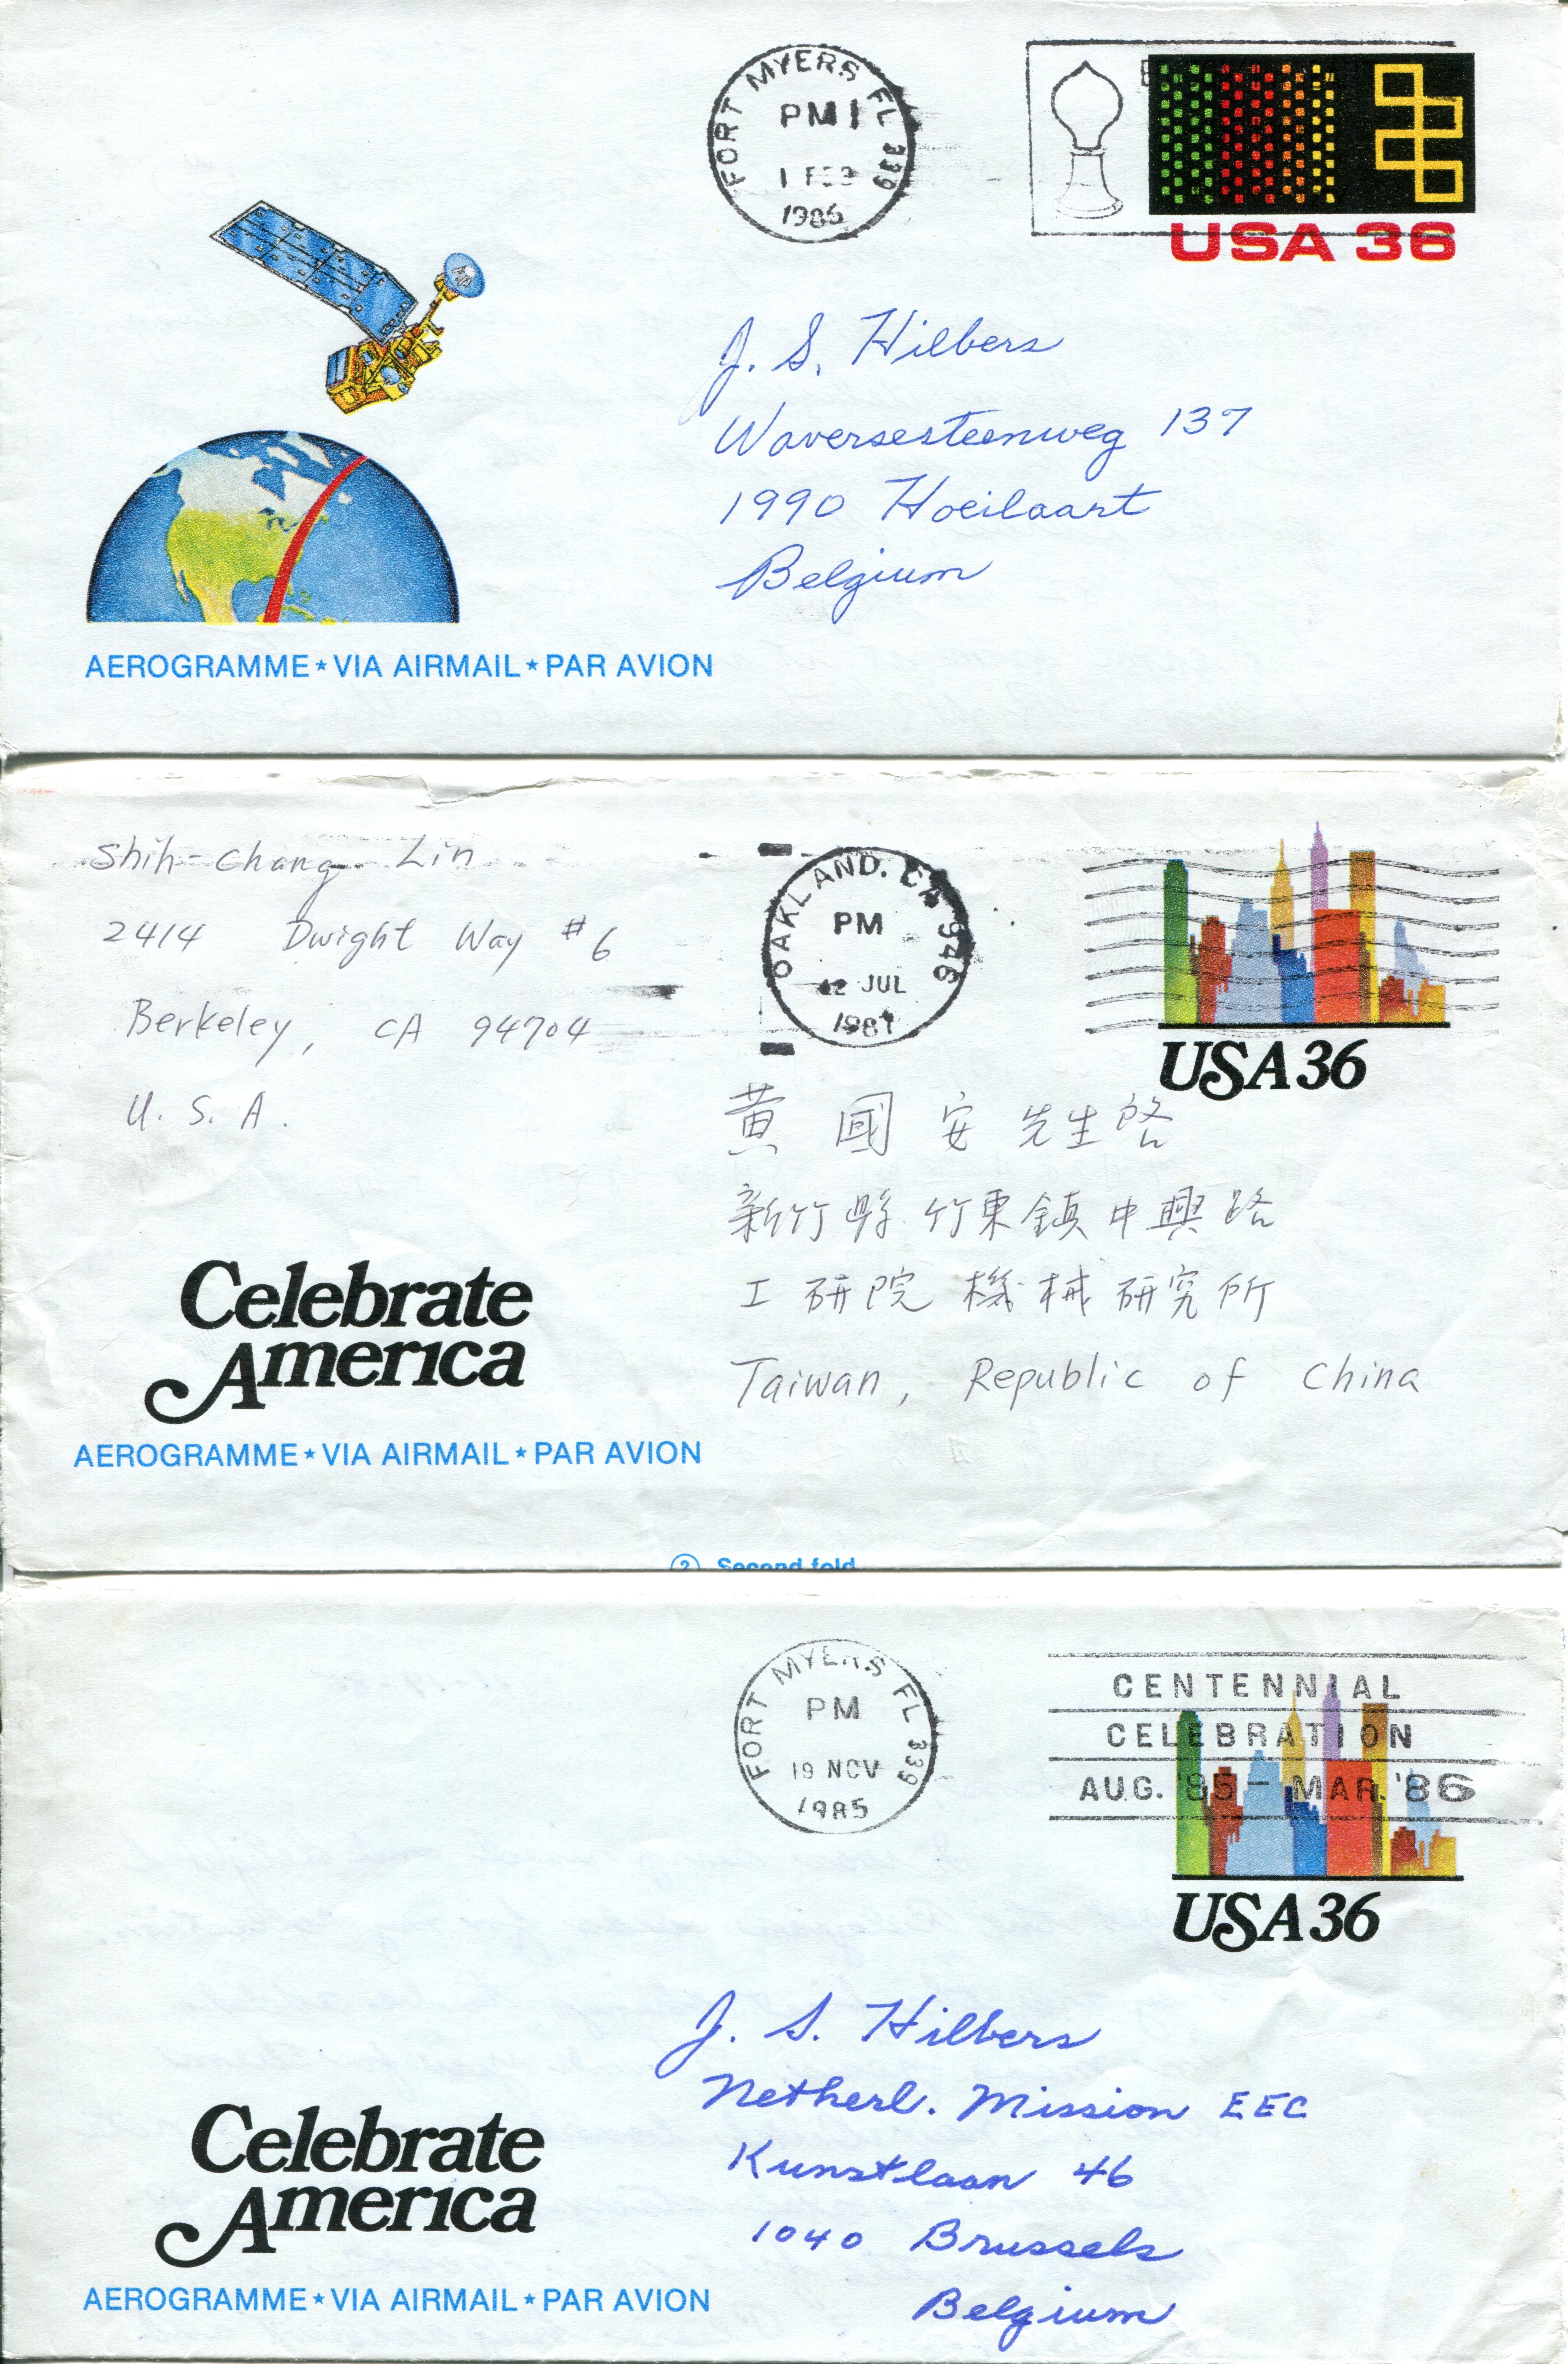 FORT MYERS FL 339
PM 1
1 FEB
1986
USA 36
J. S. Hilbers
Waversesteenweg 137
1990 Hoeilaart
Belgium
AEROGRAMME★VIA AIRMAIL★PAR AVION
Shih-Chang Lin
2414 Dwight Way #6
Berkeley, CA 94704
U. S. A.
OAKLAND. CA 946
PM
JUL
1987
USA 36
黃國安先生啟
新竹縣竹東鎮中興路
工研院機械研究所
Taiwan, Republic of China
Celebrate
America
AEROGRAMME★VIA AIRMAIL★PAR AVION
② Second fold
FORT MYERS FL 339
PM
19 NOV
1985
CENTENNIAL
CELEBRATION
AUG. '85 - MAR. '86
USA 36
J. S. Hilbers
Netherl. Mission EEC
Kunstlaan 46
1040 Brussels
Belgium
Celebrate
America
AEROGRAMME★VIA AIRMAIL★PAR AVION